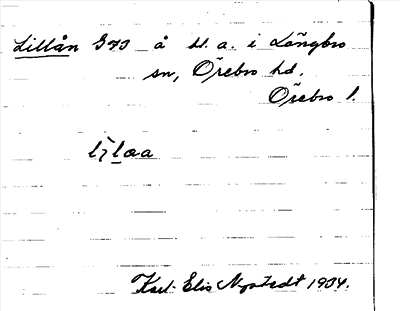 Lillån 973 å bl. a. i Längbro
sn, Örebro hd.
Örebro l.
Karl-Elis Nystedt 1904.